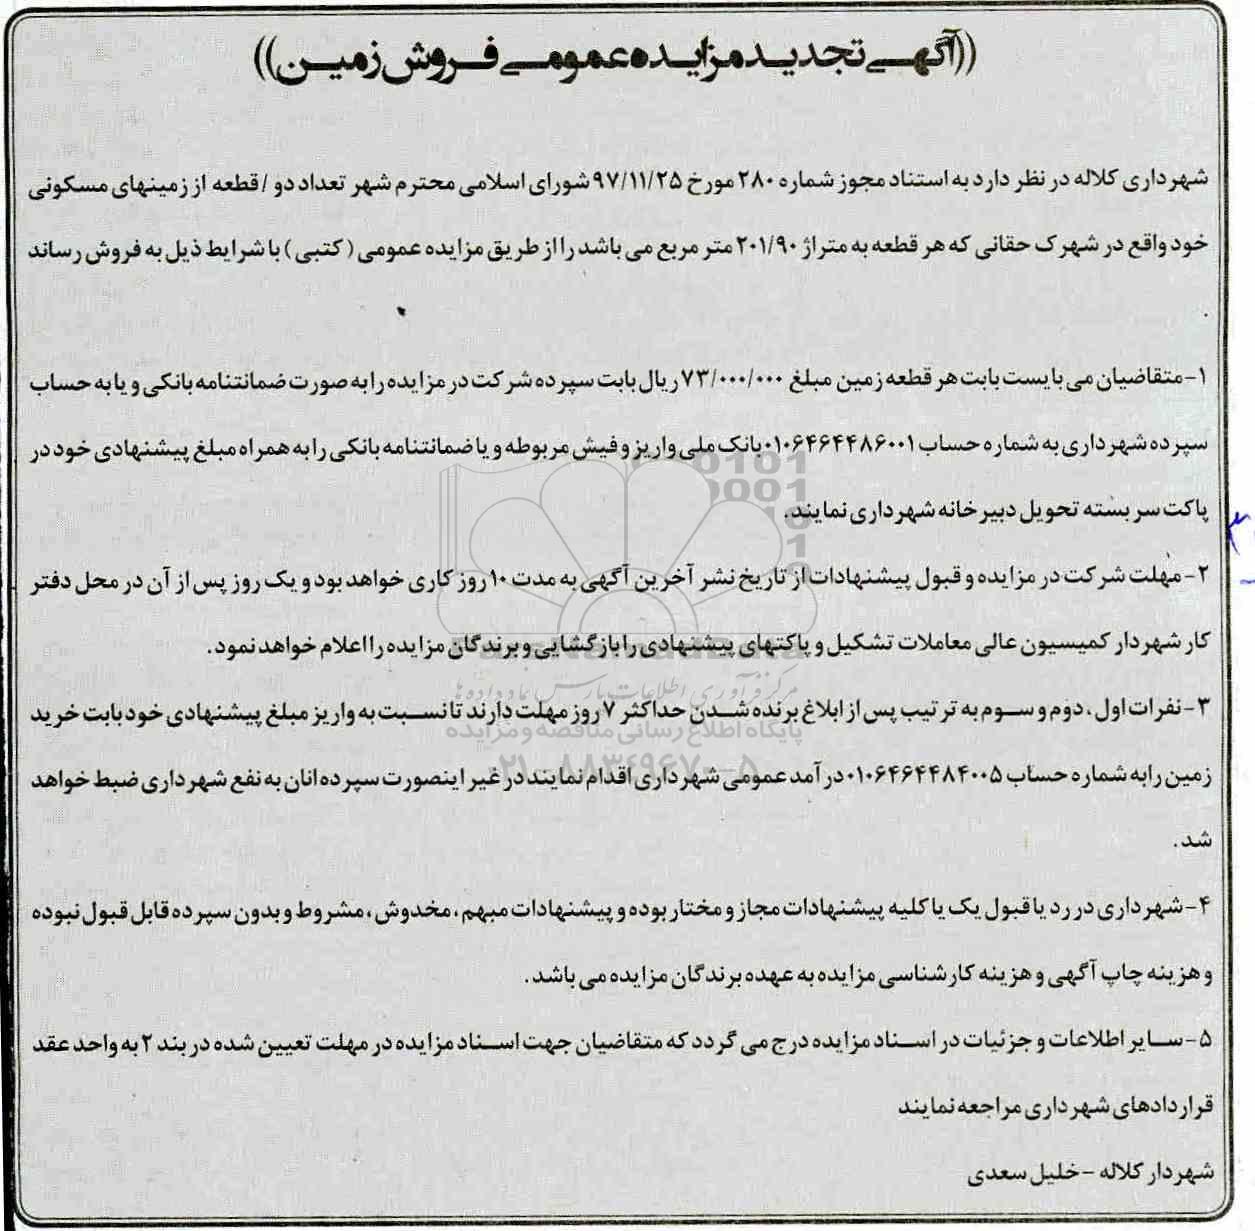 ((آگهی تجدید مزایده عمومی فروش زمین))
شهرداری کلاله در نظر دارد به استناد مجوز شماره ۲۸۰ مورخ ۹۷/۱۱/۲۵ شورای اسلامی محترم شهر تعداد دو /قطعه از زمینهای مسکونی
خود واقع در شهرک حقانی که هر قطعه به متراژ ۲۰۱/۹۰ متر مربع می باشد را از طریق مزایده عمومی (کتبی) با شرایط ذیل به فروش رساند
.
۱-متقاضیان می بایست بابت هر قطعه زمین مبلغ ۷۳/۰۰۰/۰۰۰ ریال بابت سپرده شرکت در مزایده را به صورت ضمانتنامه بانکی و یا به حساب
سپرده شهرداری به شماره حساب ۰۱۰۶۴۶۴۴۸۶۰۰۱ بانک ملی واریز و فیش مربوطه و یا ضمانتنامه بانکی را به همراه مبلغ پیشنهادی خود در
پاکت سر بسته تحویل دبیرخانه شهرداری نمایند.
۲-مهلت شرکت در مزایده و قبول پیشنهادات از تاریخ نشر آخرین آگهی به مدت ۱۰ روز کاری خواهد بود و یک روز پس از آن در محل دفتر
کار شهردار کمیسیون عالی معاملات تشکیل و پاکتهای پیشنهادی را بازگشایی و برندگان مزایده را اعلام خواهد نمود.
مرکز فرآوری اطلاعات پارس نماد داده ها
۳-نفرات اول، دوم و سوم به ترتیب پس از ابلاغ برنده شدن حداکثر ۷ روز مهلت دارند تا نسبت به واریز مبلغ پیشنهادی خود بابت خرید
پایگاه اطلاع رسانی مناقصه و مزایده
۰۲۱-۸۸۳۴۹۶۷۰-۵
زمین را به شماره حساب ۰۱۰۶۴۶۴۴۸۴۰۰۵ در آمد عمومی شهرداری اقدام نمایند در غیر اینصورت سپرده انان به نفع شهرداری ضبط خواهد
شد.
۴-شهرداری در رد یا قبول یک یا کلیه پیشنهادات مجاز و مختار بوده و پیشنهادات مبهم، مخدوش، مشروط و بدون سپرده قابل قبول نبوده
و هزینه چاپ آگهی و هزینه کارشناسی مزایده به عهده برندگان مزایده می باشد.
۵-سایر اطلاعات و جزئیات در اسناد مزایده درج می گردد که متقاضیان جهت اسناد مزایده در مهلت تعیین شده در بند ۲ به واحد عقد
قراردادهای شهرداری مراجعه نمایند
شهردار کلاله -خلیل سعدی